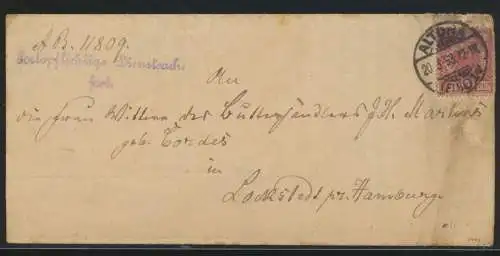 A.B. 11809.
Portopflichtige Dienstsach.
ALTONA
20 93
An
die Frau Wittwe des Butterhändlers J. H. Martens
geb. Cordes
in
Lockstedt pr. Hamburg.